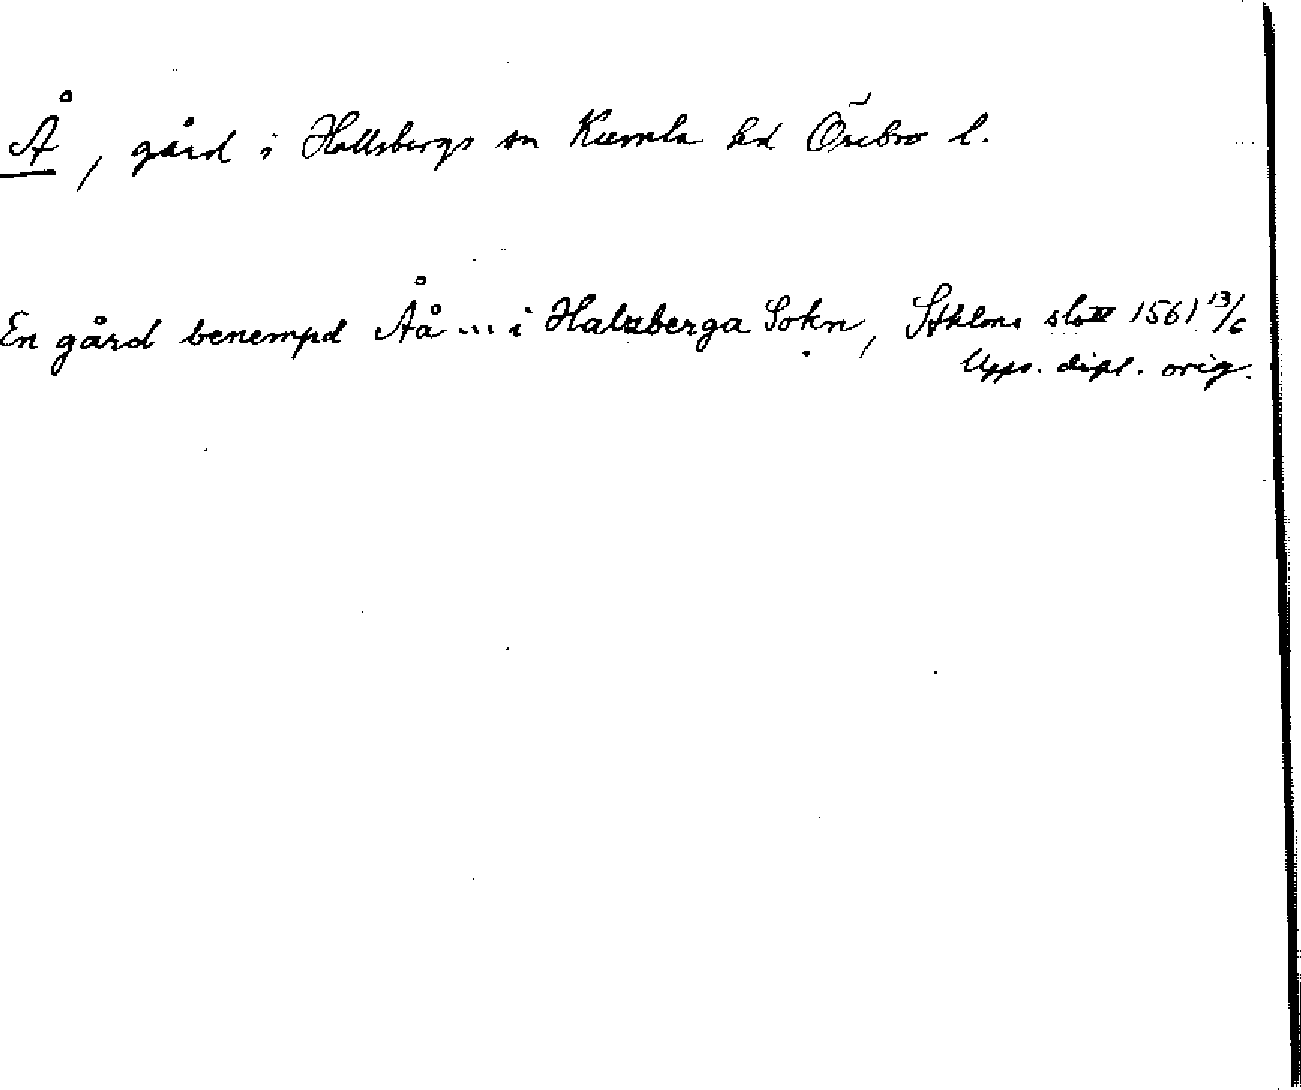 Å, gård i Hallsbergs sn Kumla hd Örebro l.
En gård benempd Åå ... i Halzberga Sokn, Sthlms slott 1561 13/6
Upps. dipl. orig.